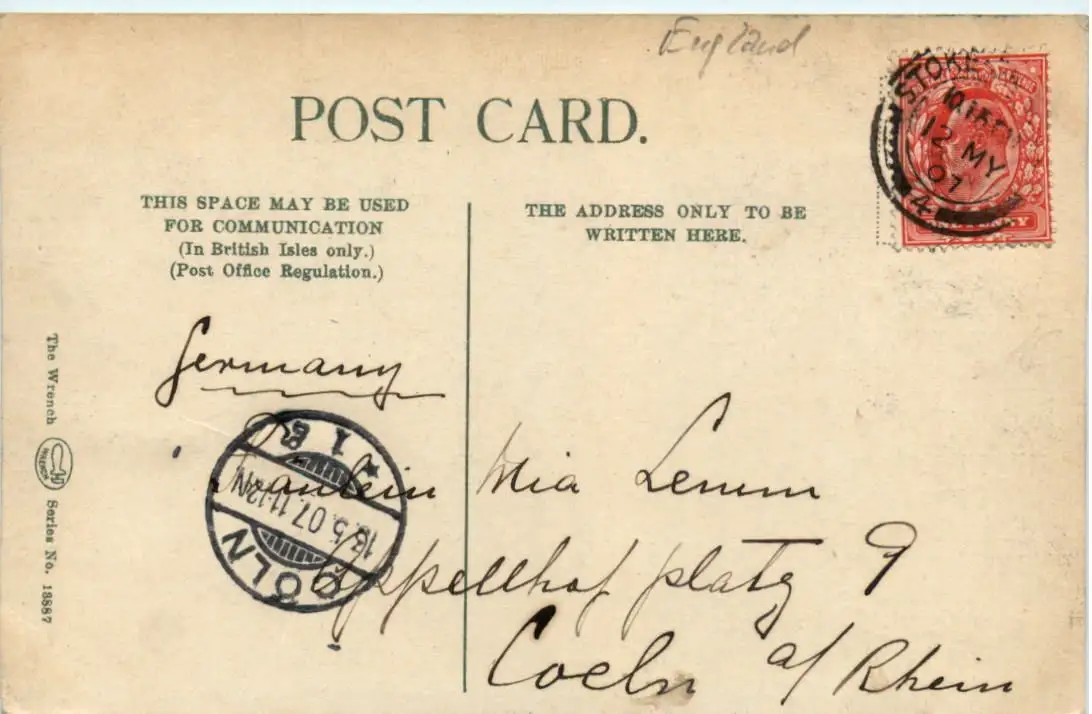 England
POST CARD.
STOKE
12 MY
07
4
THIS SPACE MAY BE USED
FOR COMMUNICATION
(In British Isles only.)
(Post Office Regulation.)
THE ADDRESS ONLY TO BE
WRITTEN HERE.
Germany
Fräulein Mia Lemm
Appellhofplatz 9
Coeln a/ Rhein
CÖLN
13.5.07.11-12N
* 1 g
The Wrench
WRENCH
Series No. 13887